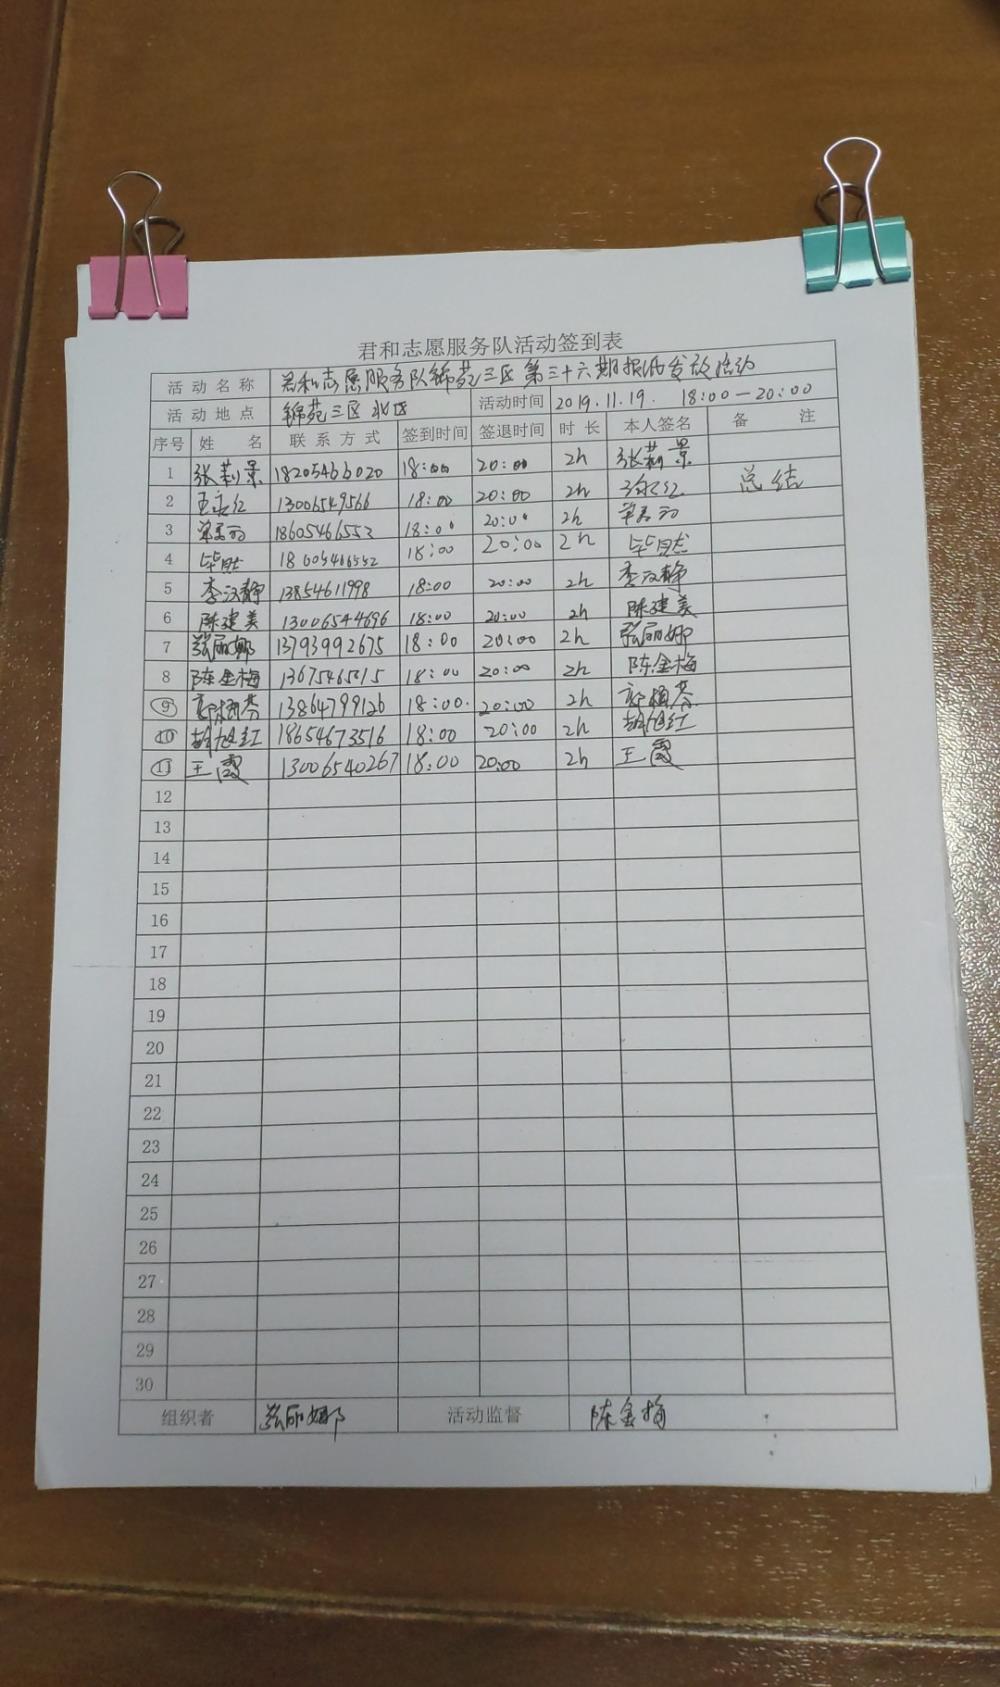 君和志愿服务队活动签到表
活动名称 君和志愿服务队锦苑三区第三十六期报纸发放活动
活动地点 锦苑三区北区 活动时间 2019.11.19. 18:00—20:00
序号 姓名 联系方式 签到时间 签退时间 时长 本人签名 备注
1 张莉景 18205466020 18:00 20:00 2h 张莉景
2 13006549566 18:00 20:00 2h 总结
3 18605466553 18:00 20:00 2h
4 毕照 18:00 20:00 2h 毕照
5 李汉静 13854611998 18:00 20:00 2h 李汉静
6 陈建美 13006544696 18:00 20:00 2h 陈建美
7 张丽娜 13793992675 18:00 20:00 2h 张丽娜
8 陈金梅 18:00 20:00 2h 陈金梅
9 郭梅芬 13864799126 18:00. 20:00 2h 郭梅芬
10 胡旭红 18654673516 18:00 20:00 2h 胡旭红
11 王霞 13006540267 18:00 20:00 2h 王霞
12
13
14
15
16
17
18
19
20
21
22
23
24
25
26
27
28
29
30
组织者 张丽娜 活动监督 陈金梅